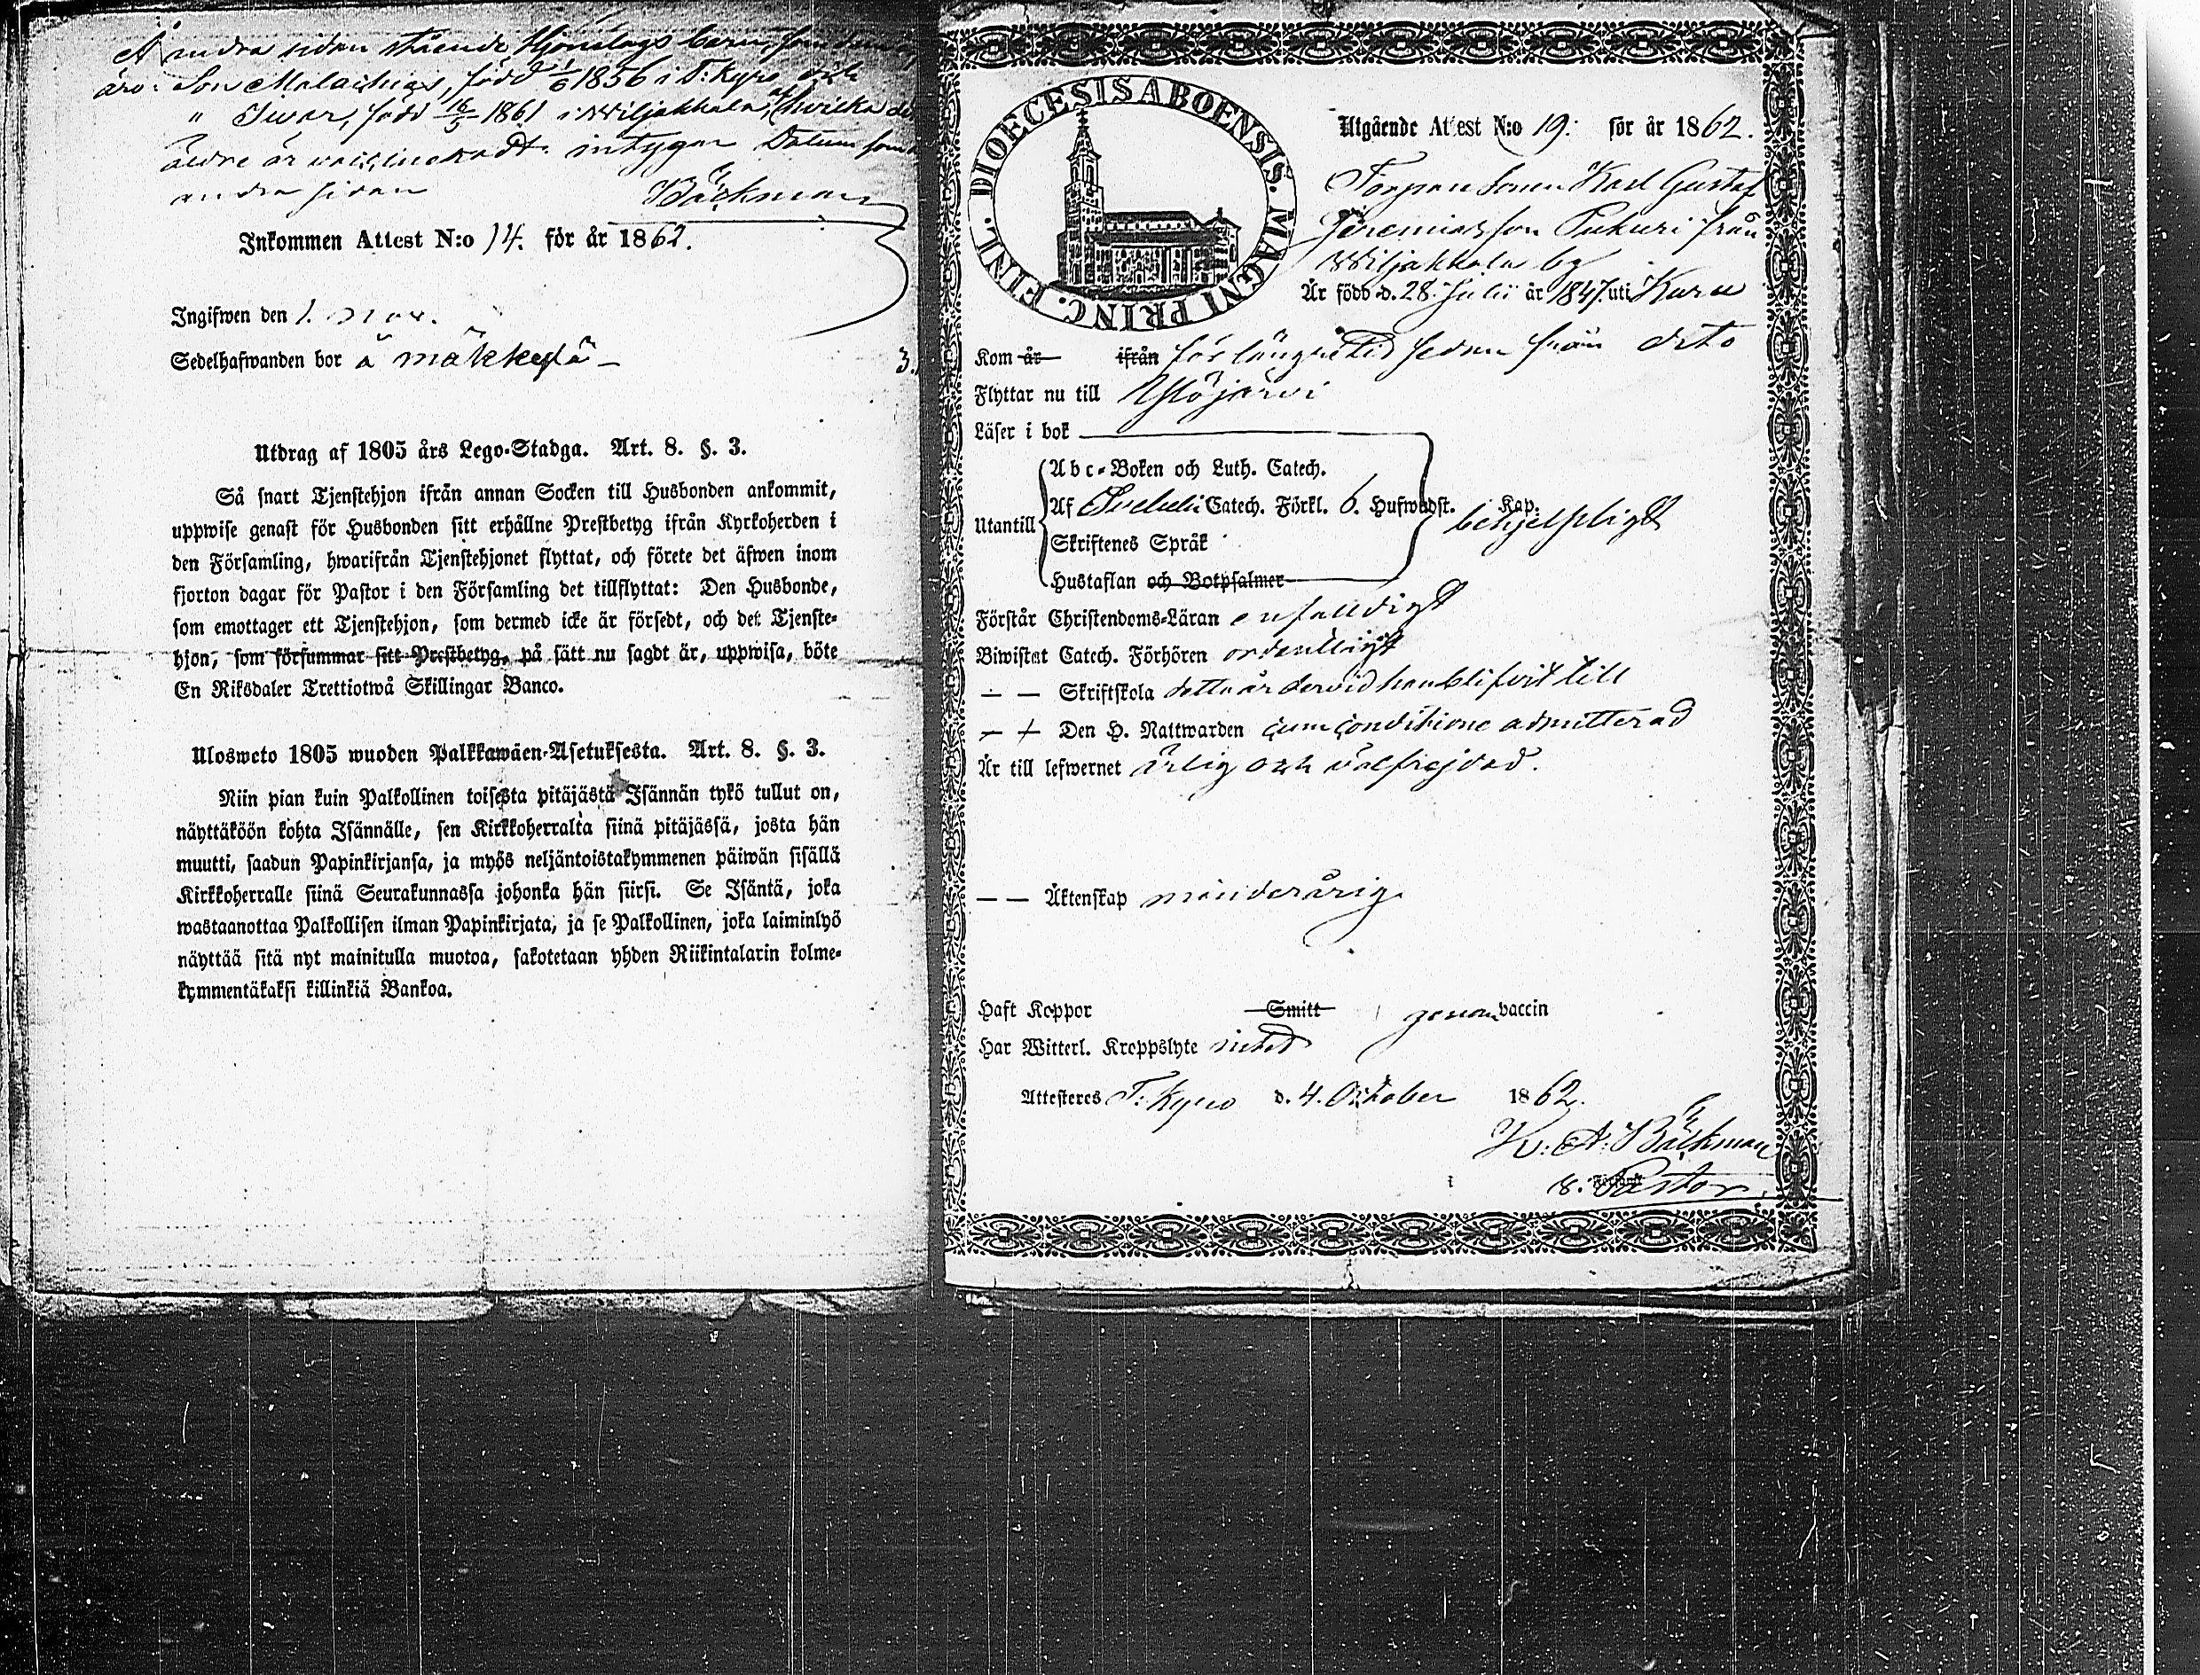 Å andra sidan stående Hjonelags barn,
äro: Son Malachias, född 1/6 1856 i T: Kyro och
" Iwar, född 16/5 1861 i Wiljakkala, hwilka
äldre är vaccineradt. intygar Datum som
andra sidan Bäckman
Inkommen Attest N:o 14. för år 1862.
Ingifwen den 1. Nov.
Sedelhafwanden bor å mäkkylä –
3.
Utdrag af 1805 års Lego-Stadga. Art. 8. §. 3.
Så snart Tjenstehjon ifrån annan Socken till Husbonden ankommit,
uppwise genast för Husbonden sitt erhållne Prestbetyg ifrån Kyrkoherden i
den Församling, hwarifrån Tjenstehjonet flyttat, och förete det äfwen inom
fjorton dagar för Pastor i den Församling det tillflyttat: Den Husbonde,
som emottager ett Tjenstehjon, som dermed icke är försedt, och det Tjenste-
hjon, som försummar sitt Prestbetyg, på sätt nu sagdt är, uppwisa, böte
En Riksdaler Trettiotwå Skillingar Banco.
Ulosweto 1805 wuoden Palkkawäen-Asetuksesta. Art. 8. §. 3.
Niin pian kuin Palkollinen toisesta pitäjästä Isännän tykö tullut on,
näyttäköön kohta Isännälle, sen Kirkkoherralta siinä pitäjässä, josta hän
muutti, saadun Papinkirjansa, ja myös neljäntoistakymmenen päiwän sisällä
Kirkkoherralle siinä Seurakunnassa johonka hän siirsi. Se Isäntä, joka
wastaanottaa Palkollisen ilman Papinkirjata, ja se Palkollinen, joka laiminlyö
näyttää sitä nyt mainitulla muotoa, sakotetaan yhden Riikintalarin kolme-
kymmentäkaksi killinkiä Bankoa.
DIOECESIS ABOENSIS. MAGNI PRINC. FINL.
Utgående Attest N:o 19. för år 1862.
Torpare Sonen Karl Gustaf
Jeremiasson Pukuri från
Wiljakkala by
Är född d. 28. Julii år 1847. uti Kuru
Kom år ifrån för längre tid sedan från dito
Flyttar nu till Ylöjärvi
Läser i bok
Abc-Boken och Luth. Catech.
Utantill Af Svebelii Catech. Förkl. 6. Hufwudst. Kap. behjelpligt
Skriftenes Språk
Hustaflan och Botpsalmer
Förstår Christendoms-Läran enfalldigt
Biwistat Catech. Förhören ordentligt
— — Skriftskola detta år dervid han blifvit till
— — Den H. Nattwarden cum conditione admitterad
Är till lefwernet ärlig och välfrejdad.
— — Äktenskap minderårig
Haft Koppor Smitt genom vaccin
Har Witterl. Kroppslyte intet
Attesteres T: Kyro d. 4. October 1862.
K: A: Bäckman
v. Pastor.